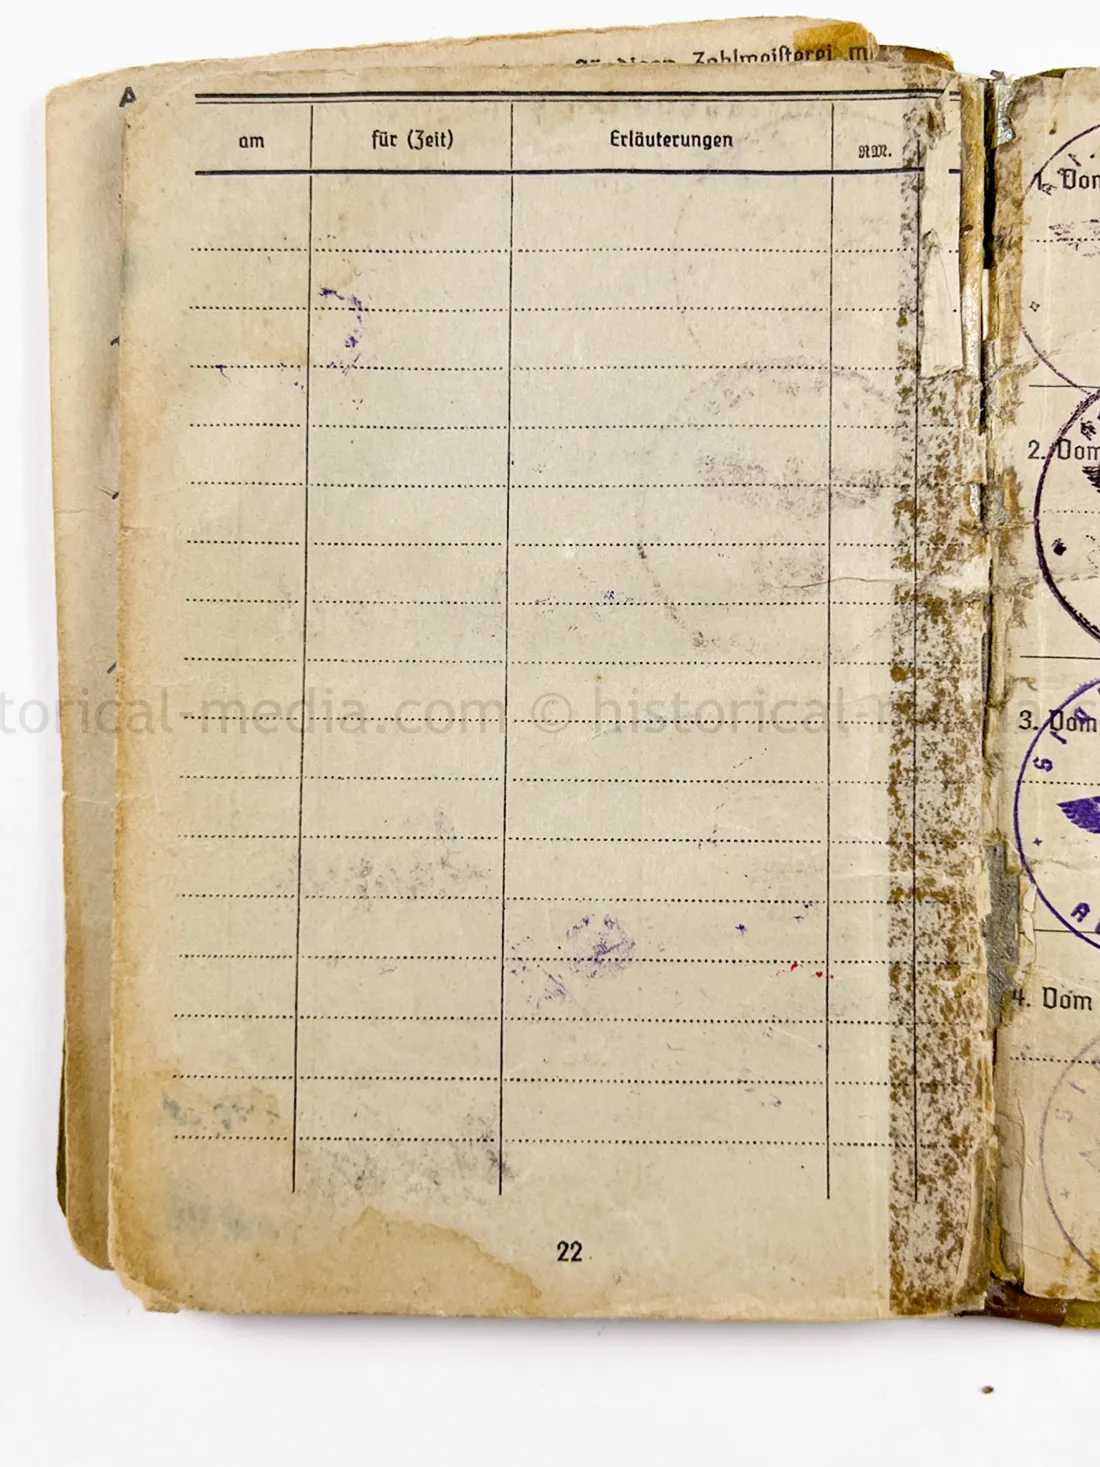 Zahlmeisterei
A
am für (Zeit) Erläuterungen RM.
22
1. Dom
2. Dom
3. Dom
4. Dom
torical-media.com © historical-m